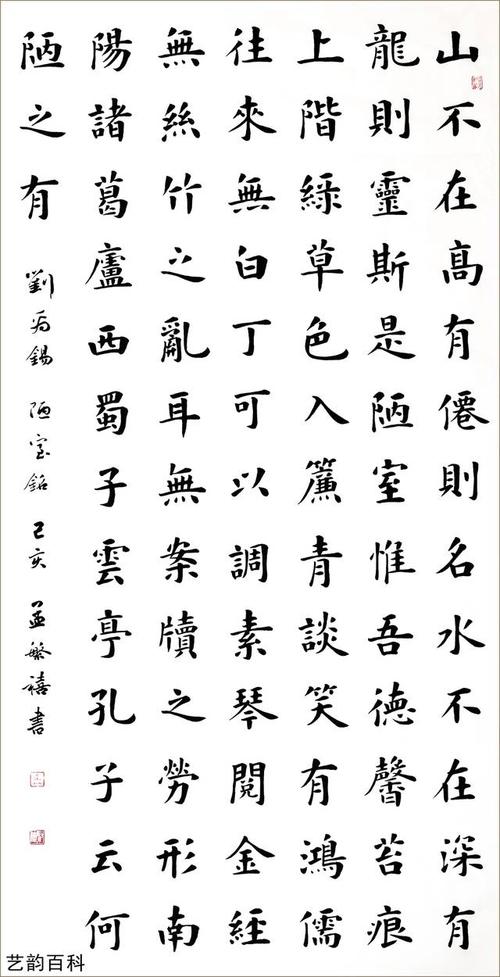 山不在高有僊則名水不在深有
龍則靈斯是陋室惟吾德馨苔痕
上階綠草色入簾青談笑有鴻儒
往來無白丁可以調素琴閱金經
無絲竹之亂耳無案牘之勞形南
陽諸葛廬西蜀子雲亭孔子云何
陋之有
劉禹錫 陋室銘 己亥 孟繁禧書
艺韵百科